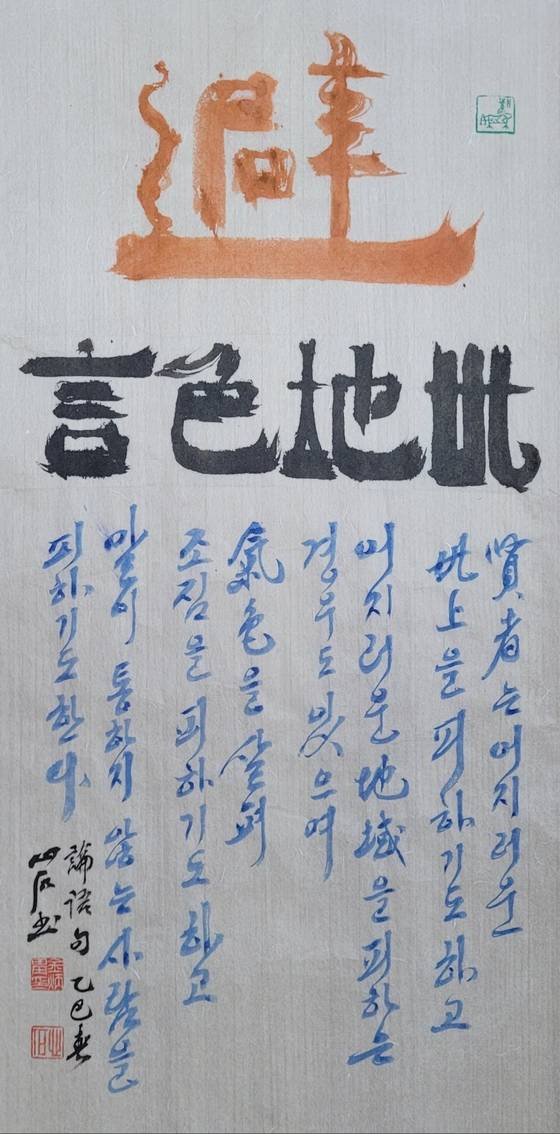 避
世地色言
賢者는 어지러운
世上을 피하기도 하고
어지러운 地域을 피하는
경우도 있으며
氣色을 살펴
조짐을 피하기도 하고
말이 통하지 않는 사람을
피하기도 한다
論語句 乙巳春